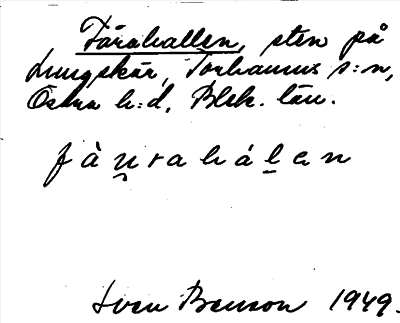 Fårahallen, sten på
Lungskär, Torhamns s:n,
Östra h:d, Blek. län.
fȧu̯rahál̠en
Sven Benson 1949.